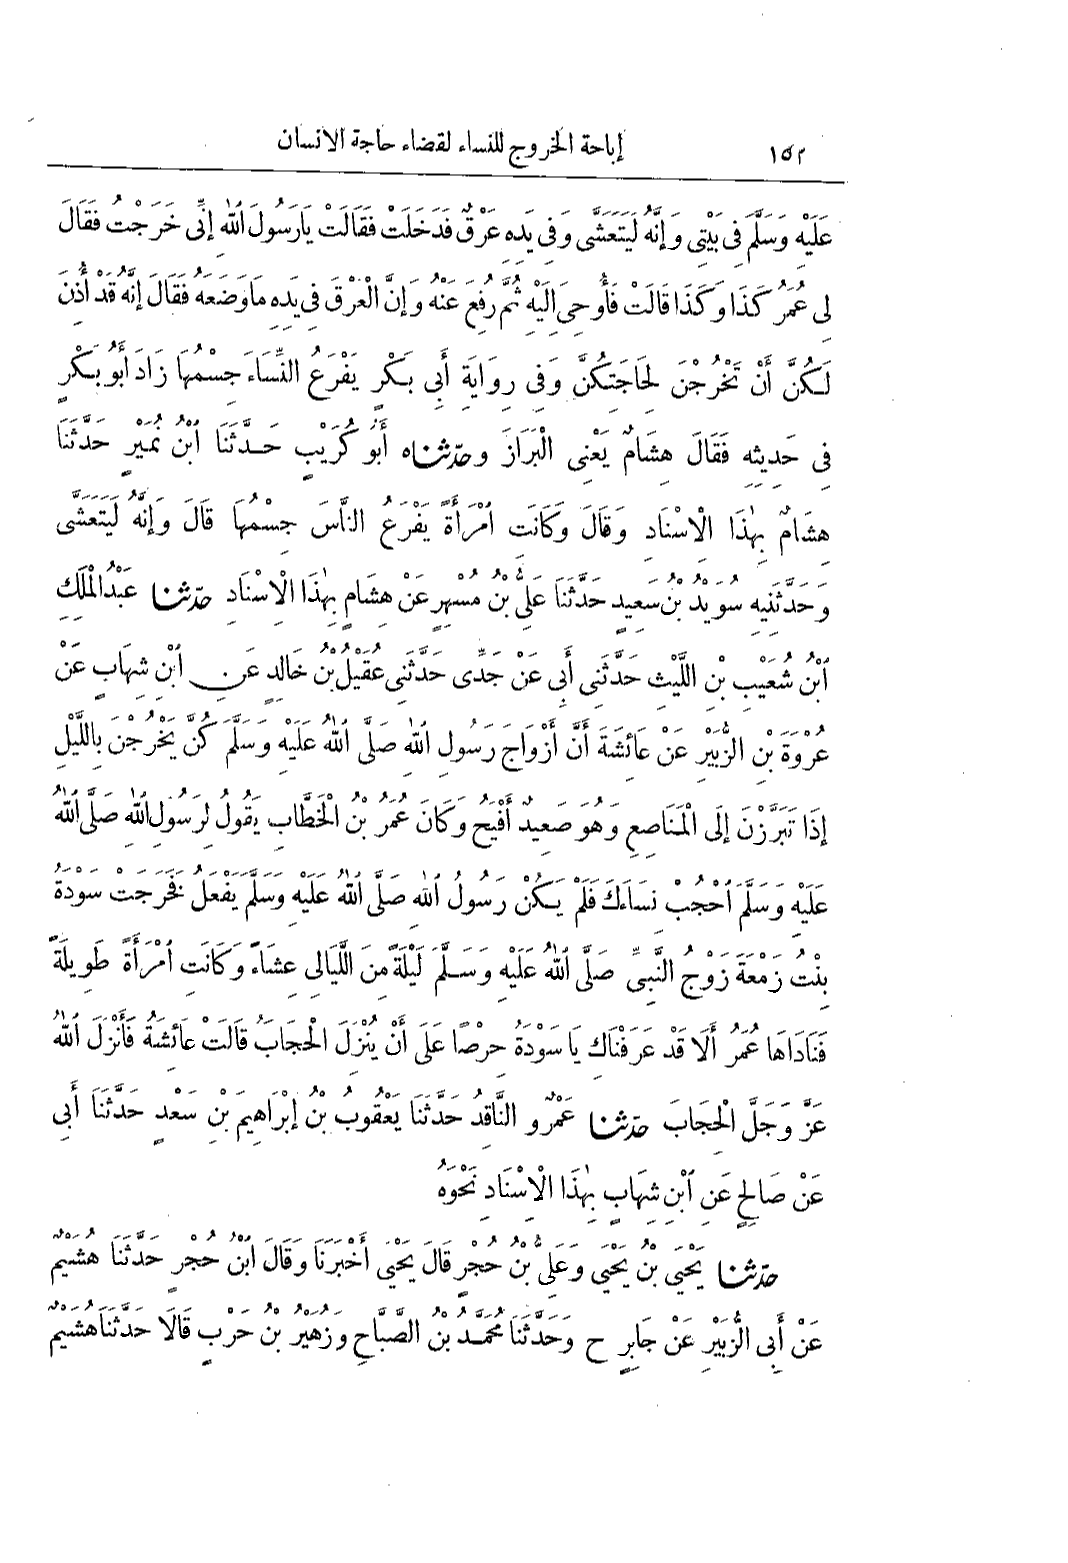 ١٥٢ إباحة الخروج للنساء لقضاء حاجة الانسان
عَلَيْهِ وَسَلَّمَ فِى بَيْتِى وَإِنَّهُ لَيَتَعَشَّى وَفِى يَدِهِ عَرْقٌ فَدَخَلَتْ فَقَالَتْ يَارَسُولَ اللهِ إِنِّى خَرَجْتُ فَقَالَ
لِى عُمَرُ كَذَا وَكَذَا قَالَتْ فَأُوحِىَ إِلَيْهِ ثُمَّ رُفِعَ عَنْهُ وَإِنَّ الْعَرْقَ فِى يَدِهِ مَاوَضَعَهُ فَقَالَ إِنَّهُ قَدْ أُذِنَ
لَكُنَّ أَنْ تَخْرُجْنَ لِحَاجَتِكُنَّ وَفِى رِوَايَةِ أَبِى بَكْرٍ يَفْرَعُ النِّسَاءَ جِسْمُهَا زَادَ أَبُو بَكْرٍ
فِى حَدِيثِهِ فَقَالَ هِشَامٌ يَعْنِى الْبَرَازَ وحدّثناه أَبُو كُرَيْبٍ حَدَّثَنَا ابْنُ نُمَيْرٍ حَدَّثَنَا
هِشَامٌ بِهٰذَا الْإِسْنَادِ وَقَالَ وَكَانَتِ امْرَأَةً يَفْرَعُ النَّاسَ جِسْمُهَا قَالَ وَإِنَّهُ لَيَتَعَشَّى
وَحَدَّثَنِيهِ سُوَيْدُ بْنُ سَعِيدٍ حَدَّثَنَا عَلِىُّ بْنُ مُسْهِرٍ عَنْ هِشَامٍ بِهٰذَا الْإِسْنَادِ حدّثنا عَبْدُ الْمَلِكِ
ابْنُ شُعَيْبِ بْنِ اللَّيْثِ حَدَّثَنِى أَبِى عَنْ جَدِّى حَدَّثَنِى عُقَيْلُ بْنُ خَالِدٍ عَنِ ابْنِ شِهَابٍ عَنْ
عُرْوَةَ بْنِ الزُّبَيْرِ عَنْ عَائِشَةَ أَنَّ أَزْوَاجَ رَسُولِ اللهِ صَلَّى اللهُ عَلَيْهِ وَسَلَّمَ كُنَّ يَخْرُجْنَ بِاللَّيْلِ
إِذَا تَبَرَّزْنَ إِلَى الْمَنَاصِعِ وَهُوَ صَعِيدٌ أَفْيَحُ وَكَانَ عُمَرُ بْنُ الْخَطَّابِ يَقُولُ لِرَسُولِ اللهِ صَلَّى اللهُ
عَلَيْهِ وَسَلَّمَ احْجُبْ نِسَاءَكَ فَلَمْ يَكُنْ رَسُولُ اللهِ صَلَّى اللهُ عَلَيْهِ وَسَلَّمَ يَفْعَلُ فَخَرَجَتْ سَوْدَةُ
بِنْتُ زَمْعَةَ زَوْجُ النَّبِىِّ صَلَّى اللهُ عَلَيْهِ وَسَلَّمَ لَيْلَةً مِنَ اللَّيَالِى عِشَاءً وَكَانَتِ امْرَأَةً طَوِيلَةً
فَنَادَاهَا عُمَرُ أَلَا قَدْ عَرَفْنَاكِ يَا سَوْدَةُ حِرْصًا عَلَى أَنْ يُنْزَلَ الْحِجَابُ قَالَتْ عَائِشَةُ فَأَنْزَلَ اللهُ
عَزَّ وَجَلَّ الْحِجَابَ حدّثنا عَمْرٌو النَّاقِدُ حَدَّثَنَا يَعْقُوبُ بْنُ إِبْرَاهِيمَ بْنِ سَعْدٍ حَدَّثَنَا أَبِى
عَنْ صَالِحٍ عَنِ ابْنِ شِهَابٍ بِهٰذَا الْإِسْنَادِ نَحْوَهُ
حدّثنا يَحْيَى بْنُ يَحْيَى وَعَلِىُّ بْنُ حُجْرٍ قَالَ يَحْيَى أَخْبَرَنَا وَقَالَ ابْنُ حُجْرٍ حَدَّثَنَا هُشَيْمٌ
عَنْ أَبِى الزُّبَيْرِ عَنْ جَابِرٍ ح وَحَدَّثَنَا مُحَمَّدُ بْنُ الصَّبَّاحِ وَزُهَيْرُ بْنُ حَرْبٍ قَالَا حَدَّثَنَا هُشَيْمٌ